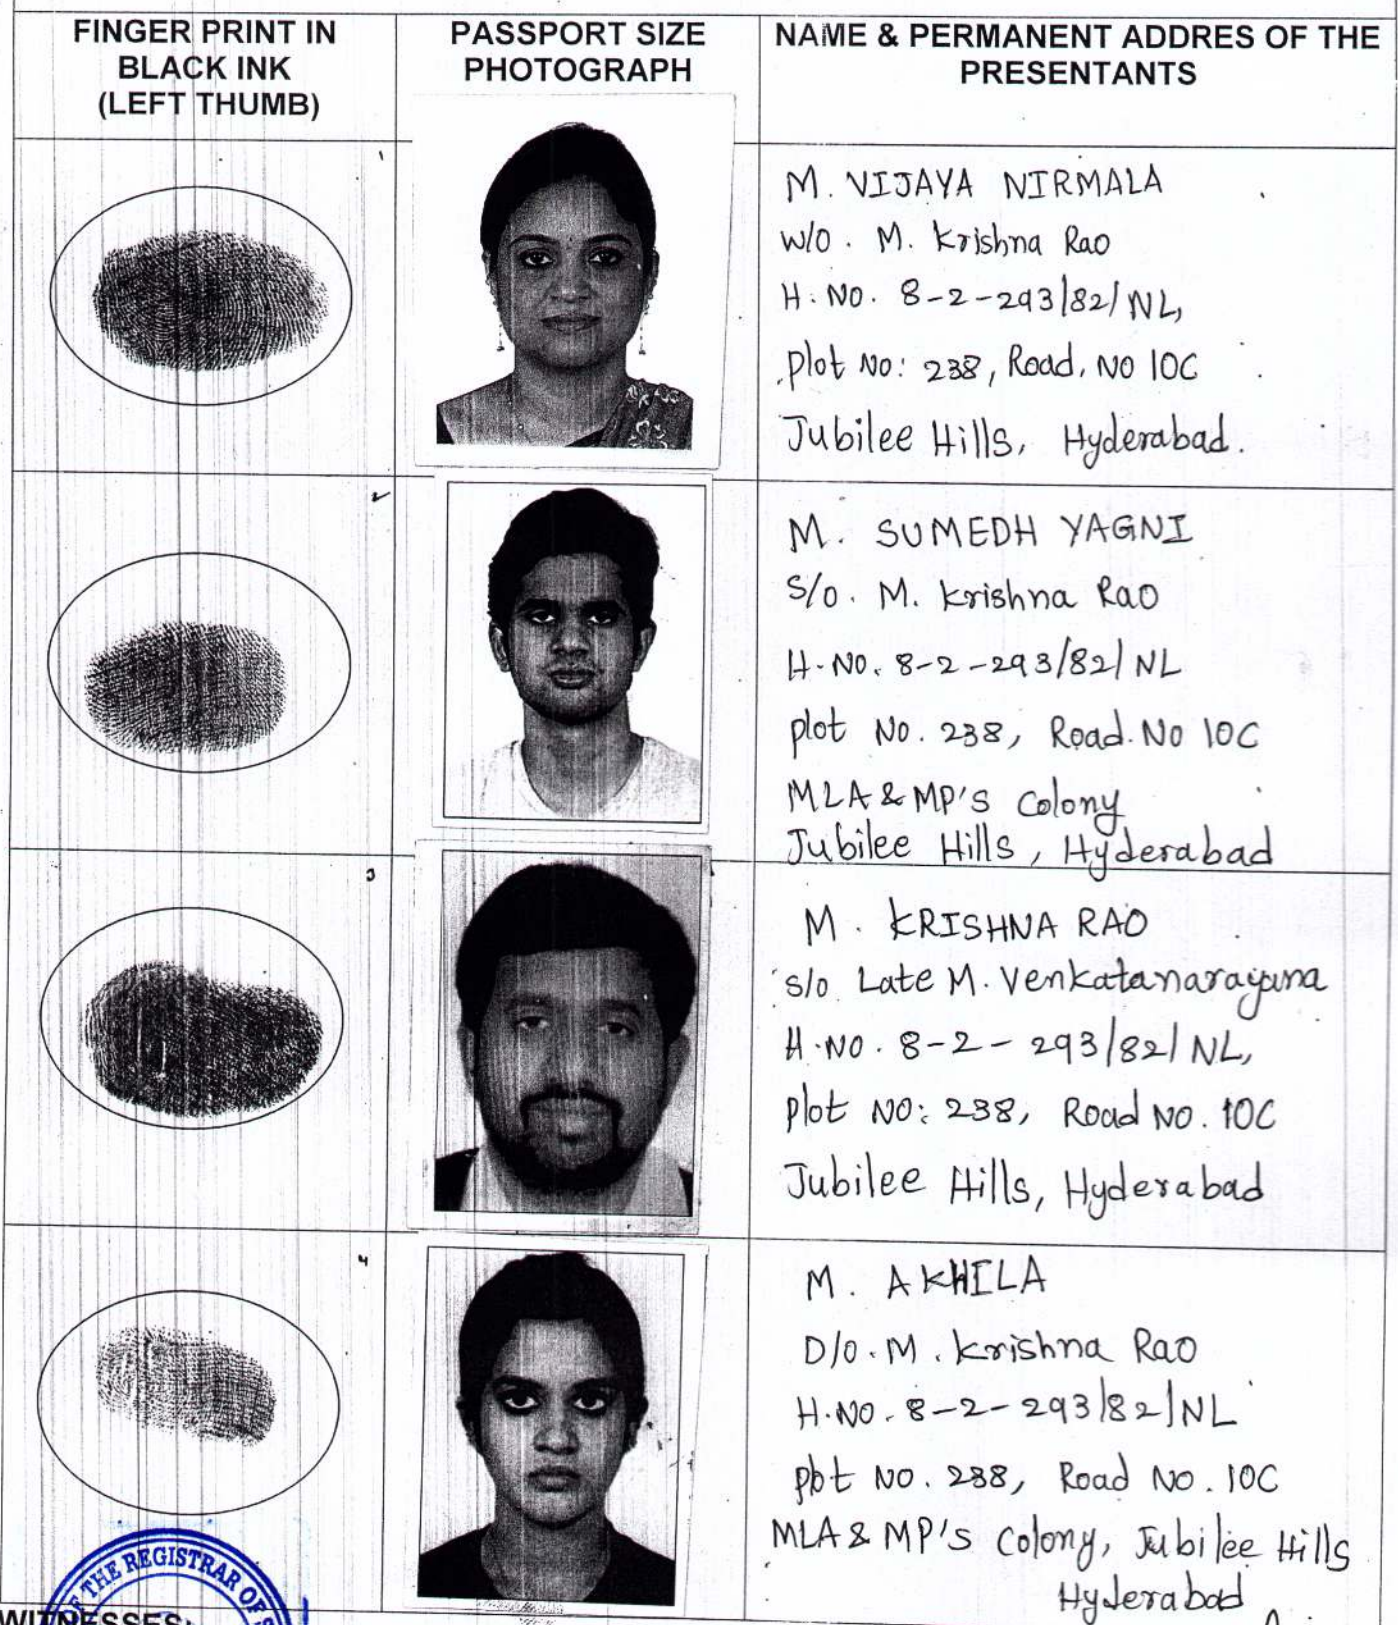 FINGER PRINT IN
BLACK INK
(LEFT THUMB)
PASSPORT SIZE
PHOTOGRAPH
NAME & PERMANENT ADDRES OF THE
PRESENTANTS
1
M. VIJAYA NIRMALA
W/O. M. Krishna Rao
H. NO. 8-2-293/82/NL,
plot No: 238, Road. No 10C
Jubilee Hills, Hyderabad.
2
M. SUMEDH YAGNI
S/o. M. Krishna Rao
H.NO. 8-2-293/82/NL
plot No. 238, Road. No 10C
MLA & MP'S Colony
Jubilee Hills, Hyderabad
3
M. KRISHNA RAO
s/o Late M. Venkatanarayana
H.NO. 8-2-293/82/NL,
plot NO: 238, Road NO. 10C
Jubilee Hills, Hyderabad
4
M. AKHILA
D/O. M. Krishna Rao
H.NO. 8-2-293/82/NL
plot NO. 238, Road No. 10C
MLA & MP'S Colony, Jubilee Hills
Hyderabad
THE REGISTRAR OF
WITNESSES: